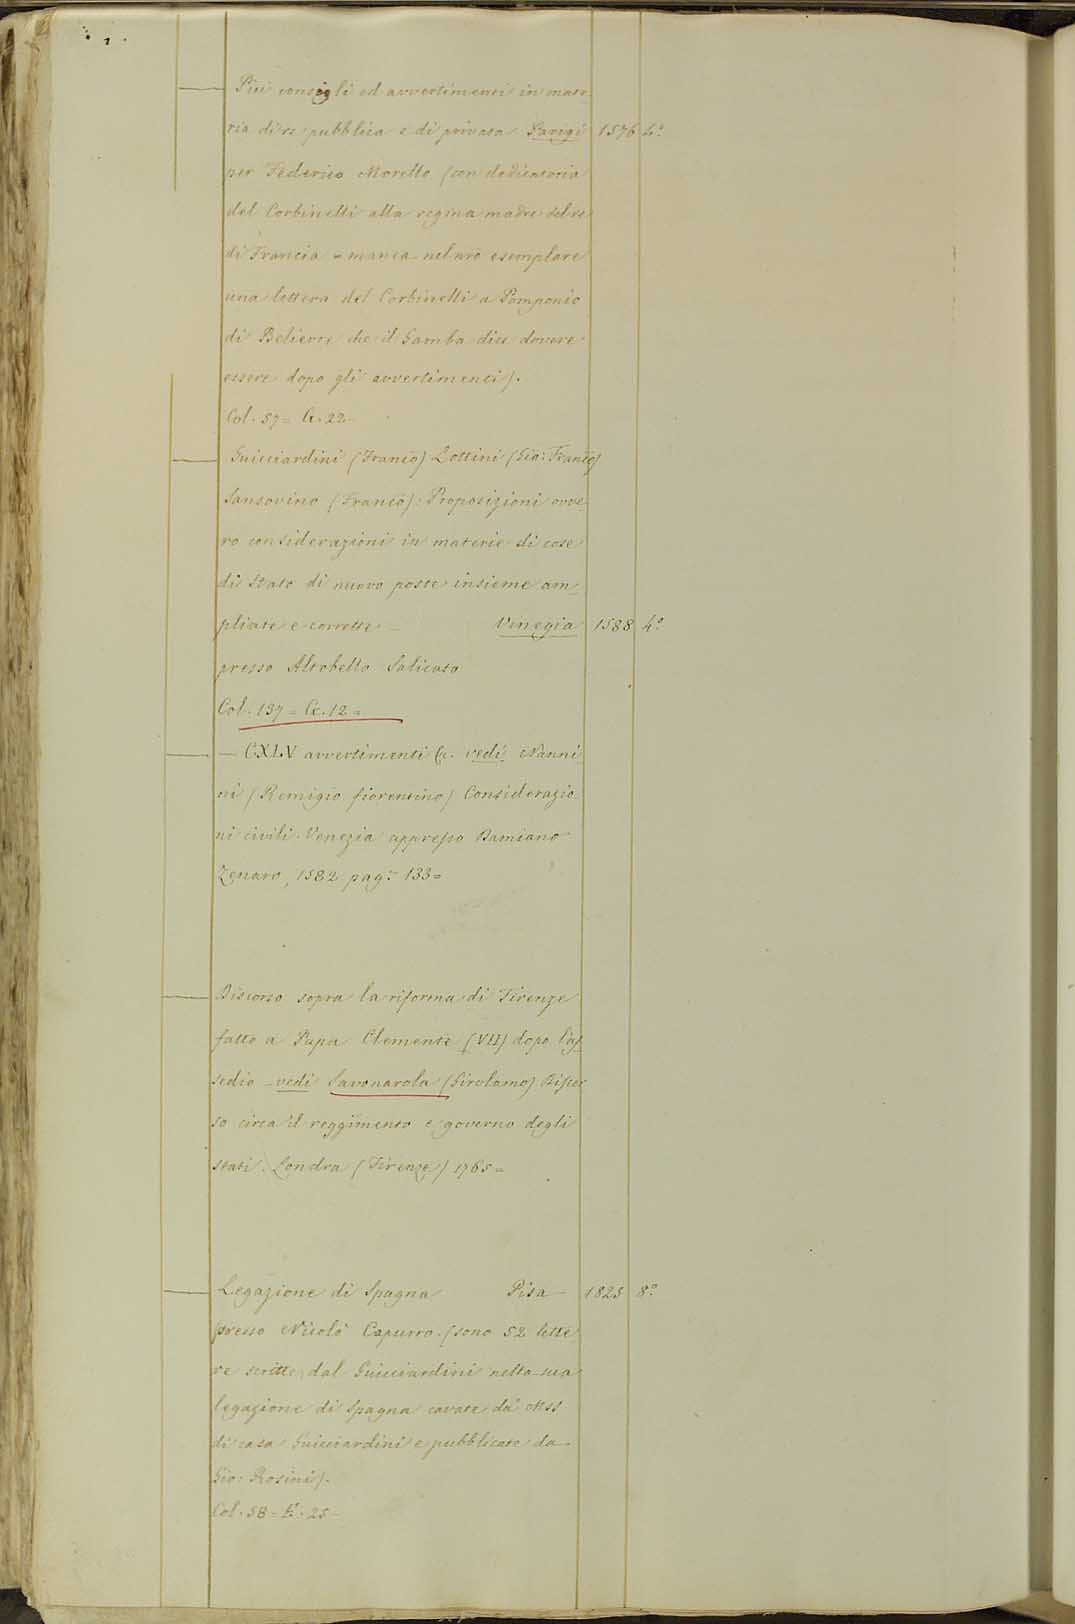 Più consigli ed avvertimenti in mate-
ria di re pubblica e di privata Parigi 1576 4º
per Federico Morello (con dedicatoria
del Corbinelli alla regina madre del re
di Francia = manca nel nrō esemplare
una lettera del Corbinelli a Pomponio
di Believre che il Gamba dice dovere
essere dopo gli avvertimenti).
Col. 57 = Cr. 22 -
Guicciardini (Francō) Lottini (Gio: Francō)
Sansovino (Francō): Proposizioni ovve-
ro considerazioni in materie di cose
di Stato di nuovo poste insieme am-
pliate e corrette - Venezia 1588 4º
presso Altobello Salicato
Col. 137 = Cr. 12 =
— CXLV avvertimenti &. vedi Nanni-
ni (Remigio fiorentino) Considerazio-
ni civili. Venezia appresso Damiano
Zenaro, 1582 pagª 133 =
Discorso sopra la riforma di Firenze
fatto a Papa Clemente (VII) dopo l'as-
sedio - vedi Savonarola (Girolamo) Discor
so circa il reggimento e governo degli
stati. Londra (Firenze) 1765 =
Legazione di Spagna Pisa - 1825 8º
presso Nicolò Capurro. (sono 52 lette-
re scritte dal Guicciardini nella sua
legazione di Spagna cavate da' Mss
di casa Guicciardini e pubblicate da
Gio: Rosini).
Col. 58 = 25 -